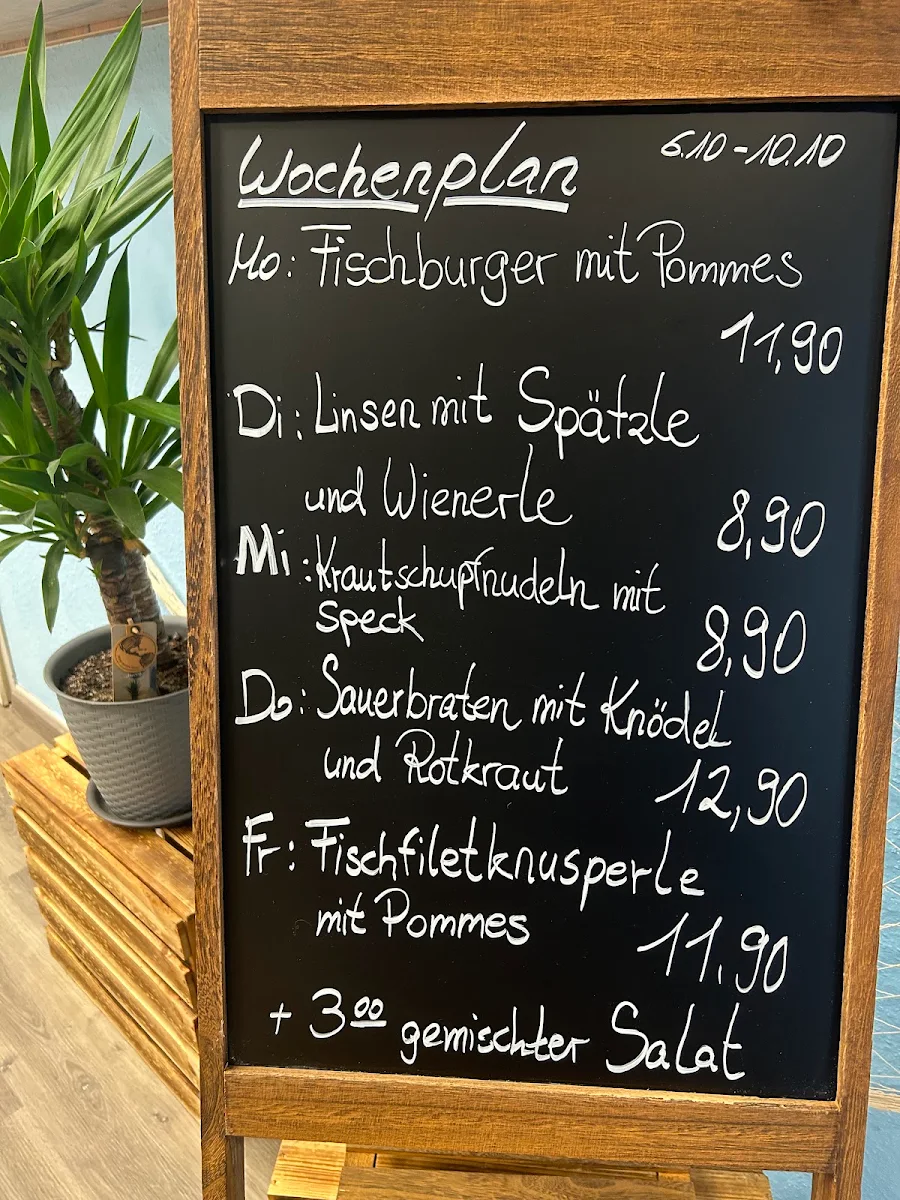 Wochenplan 6.10-10.10
Mo: Fischburger mit Pommes
11,90
Di: Linsen mit Spätzle
und Wienerle 8,90
Mi: Krautschupfnudeln mit
Speck 8,90
Do: Sauerbraten mit Knödel
und Rotkraut 12,90
Fr: Fischfiletknusperle
mit Pommes 11.90
+ 3⁰⁰ gemischter Salat